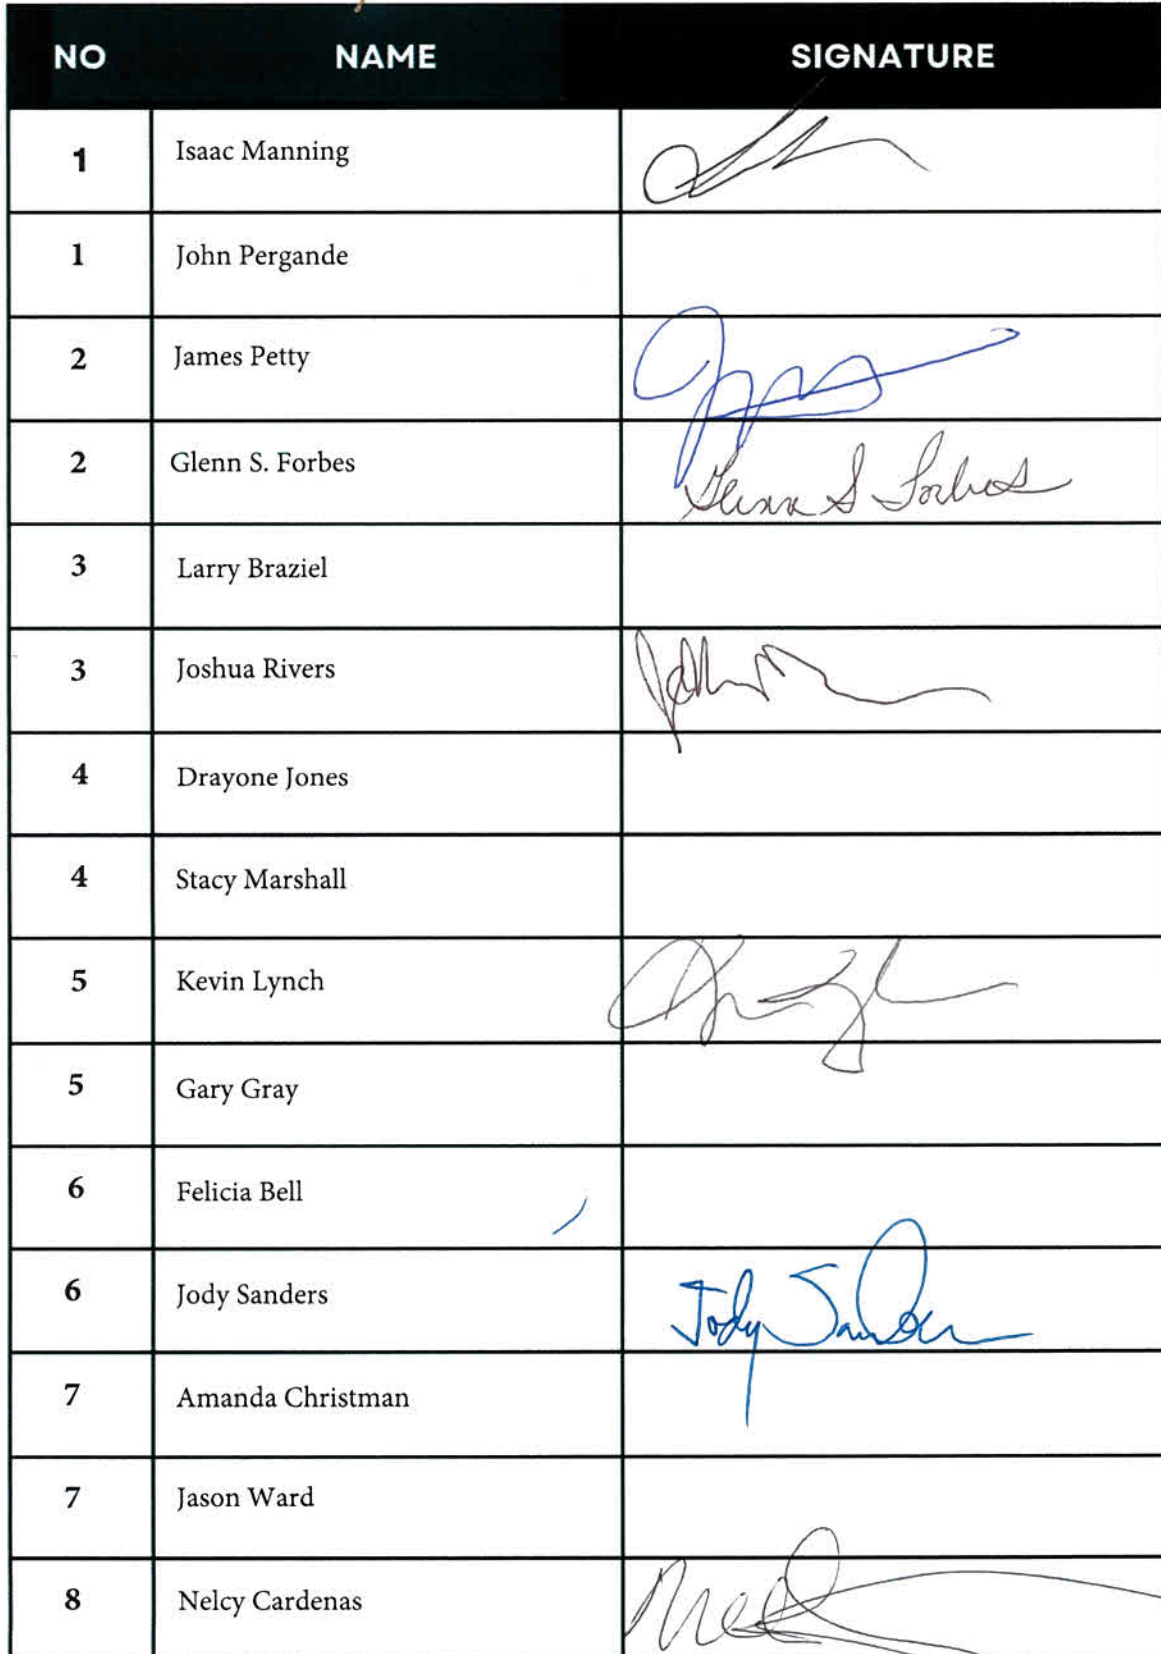 NO NAME SIGNATURE
1 Isaac Manning
1 John Pergande
2 James Petty
2 Glenn S. Forbes Glenn S Forbes
3 Larry Braziel
3 Joshua Rivers
4 Drayone Jones
4 Stacy Marshall
5 Kevin Lynch
5 Gary Gray
6 Felicia Bell
6 Jody Sanders Jody Sanders
7 Amanda Christman
7 Jason Ward
8 Nelcy Cardenas